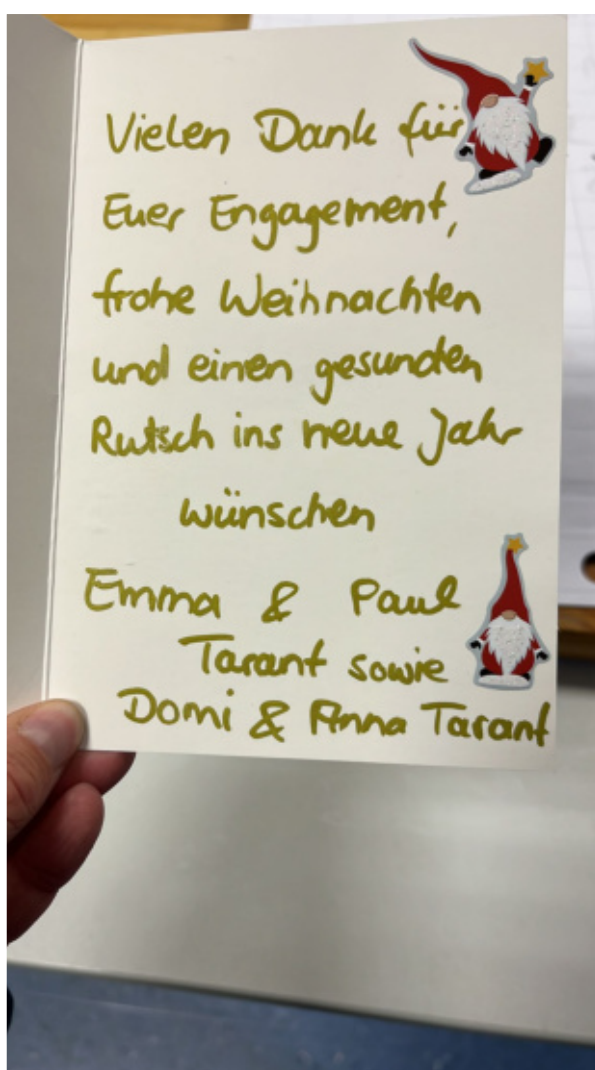 Vielen Dank für
Euer Engagement,
frohe Weihnachten
und einen gesunden
Rutsch ins neue Jahr
wünschen
Emma & Paul
Tarant sowie
Domi & Anna Tarant